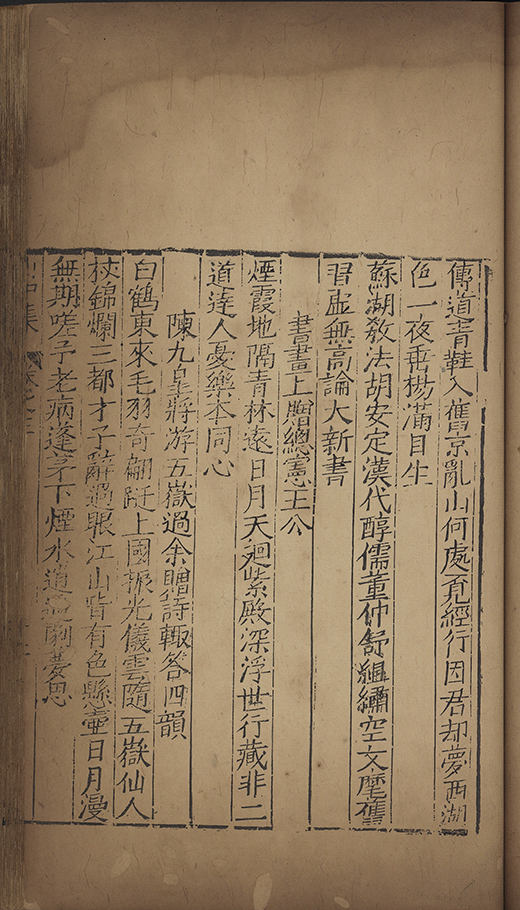 傳道青鞋入舊京亂山何處覓經行因君却夢西湖
色一夜垂楊滿目生
蘇湖敎法胡安定漢代醇儒董仲舒縕繡空文塵舊
習虛無高論大新書
書畫上贈總憲王公
煙霞地隔青林遠日月天迴紫殿深浮世行藏非二
道達人憂樂本同心
陳九皐將游五嶽過余贈詩輙答四韻
白鶴東來毛羽奇翩躚上國振光儀雲隨五嶽仙人
杖錦爛三都才子辭過眼江山皆有色懸壺日月漫
無期嗟予老病蓬茅下煙水逍遙夢思
集